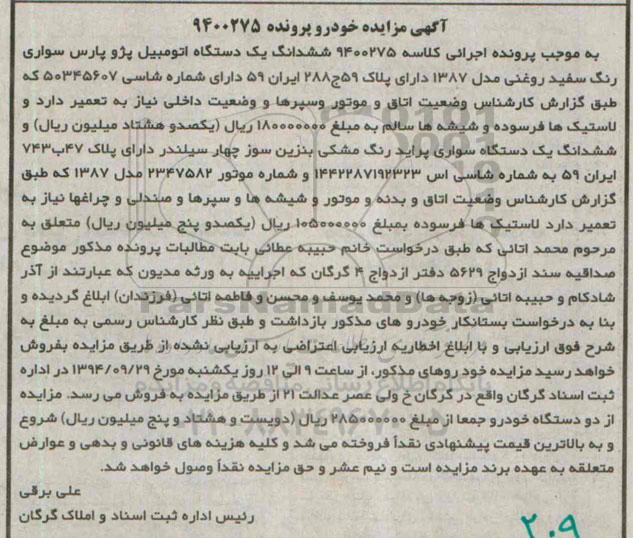 آگهی مزایده خودرو پرونده ۹۴۰۰۲۷۵
به موجب پرونده اجرائی کلاسه ۹۴۰۰۲۷۵ ششدانگ یک دستگاه اتومبیل پژو پارس سواری
رنگ سفید روغنی مدل ۱۳۸۷ دارای پلاک ۵۹ج۲۸۸ ایران ۵۹ دارای شماره شاسی ۵۰۳۴۵۶۰۷ که
طبق گزارش کارشناس وضعیت اتاق و موتور وسپرها و وضعیت داخلی نیاز به تعمیر دارد و
لاستیک ها فرسوده و شیشه ها سالم به مبلغ ۱۸۰۰۰۰۰۰۰ ریال (یکصدو هشتاد میلیون ریال) و
ششدانگ یک دستگاه سواری پراید رنگ مشکی بنزین سوز چهار سیلندر دارای پلاک ۴۷ب۷۴۳
ایران ۵۹ به شماره شاسی اس ۱۴۴۲۲۸۷۱۹۲۳۲۳ و شماره موتور ۲۳۴۷۵۸۲ مدل ۱۳۸۷ که طبق
گزارش کارشناس وضعیت اتاق و بدنه و موتور و شیشه ها و سپرها و صندلی و چراغها نیاز به
تعمیر دارد لاستیک ها فرسوده بمبلغ ۱۰۵۰۰۰۰۰۰ ریال (یکصدو پنج میلیون ریال) متعلق به
مرحوم محمد اتائی که طبق درخواست خانم حبیبه عطائی بابت مطالبات پرونده مذکور موضوع
صداقیه سند ازدواج ۵۶۲۹ دفتر ازدواج ۴ گرگان که اجراییه به ورثه مدیون که عبارتند از آذر
شادکام و حبیبه اتائی (زوجه ها) و محمد یوسف و محسن و فاطمه اتائی (فرزندان) ابلاغ گردیده و
بنا به درخواست بستانکار خودرو های مذکور بازداشت و طبق نظر کارشناس رسمی به مبلغ به
شرح فوق ارزیابی و با ابلاغ اخطاریه ارزیابی اعتراضی به ارزیابی نشده از طریق مزایده بفروش
خواهد رسید مزایده خود روهای مذکور. از ساعت ۹ الی ۱۲ روز یکشنبه مورخ ۱۳۹۴/۰۹/۲۹ در اداره
ثبت اسناد گرگان واقع در گرگان خ ولی عصر عدالت ۲۱ از طریق مزایده به فروش می رسد. مزایده
از دو دستگاه خودرو جمعا از مبلغ ۲۸۵۰۰۰۰۰۰ ریال (دویست و هشتاد و پنج میلیون ریال) شروع
و به بالاترین قیمت پیشنهادی نقداً فروخته می شد و کلیه هزینه های قانونی و بدهی و عوارض
متعلقه به عهده برند مزایده است و نیم عشر و حق مزایده نقداً وصول خواهد شد.
علی برقی
رئیس اداره ثبت اسناد و املاک گرگان
۲۰۹
ParsNamadData